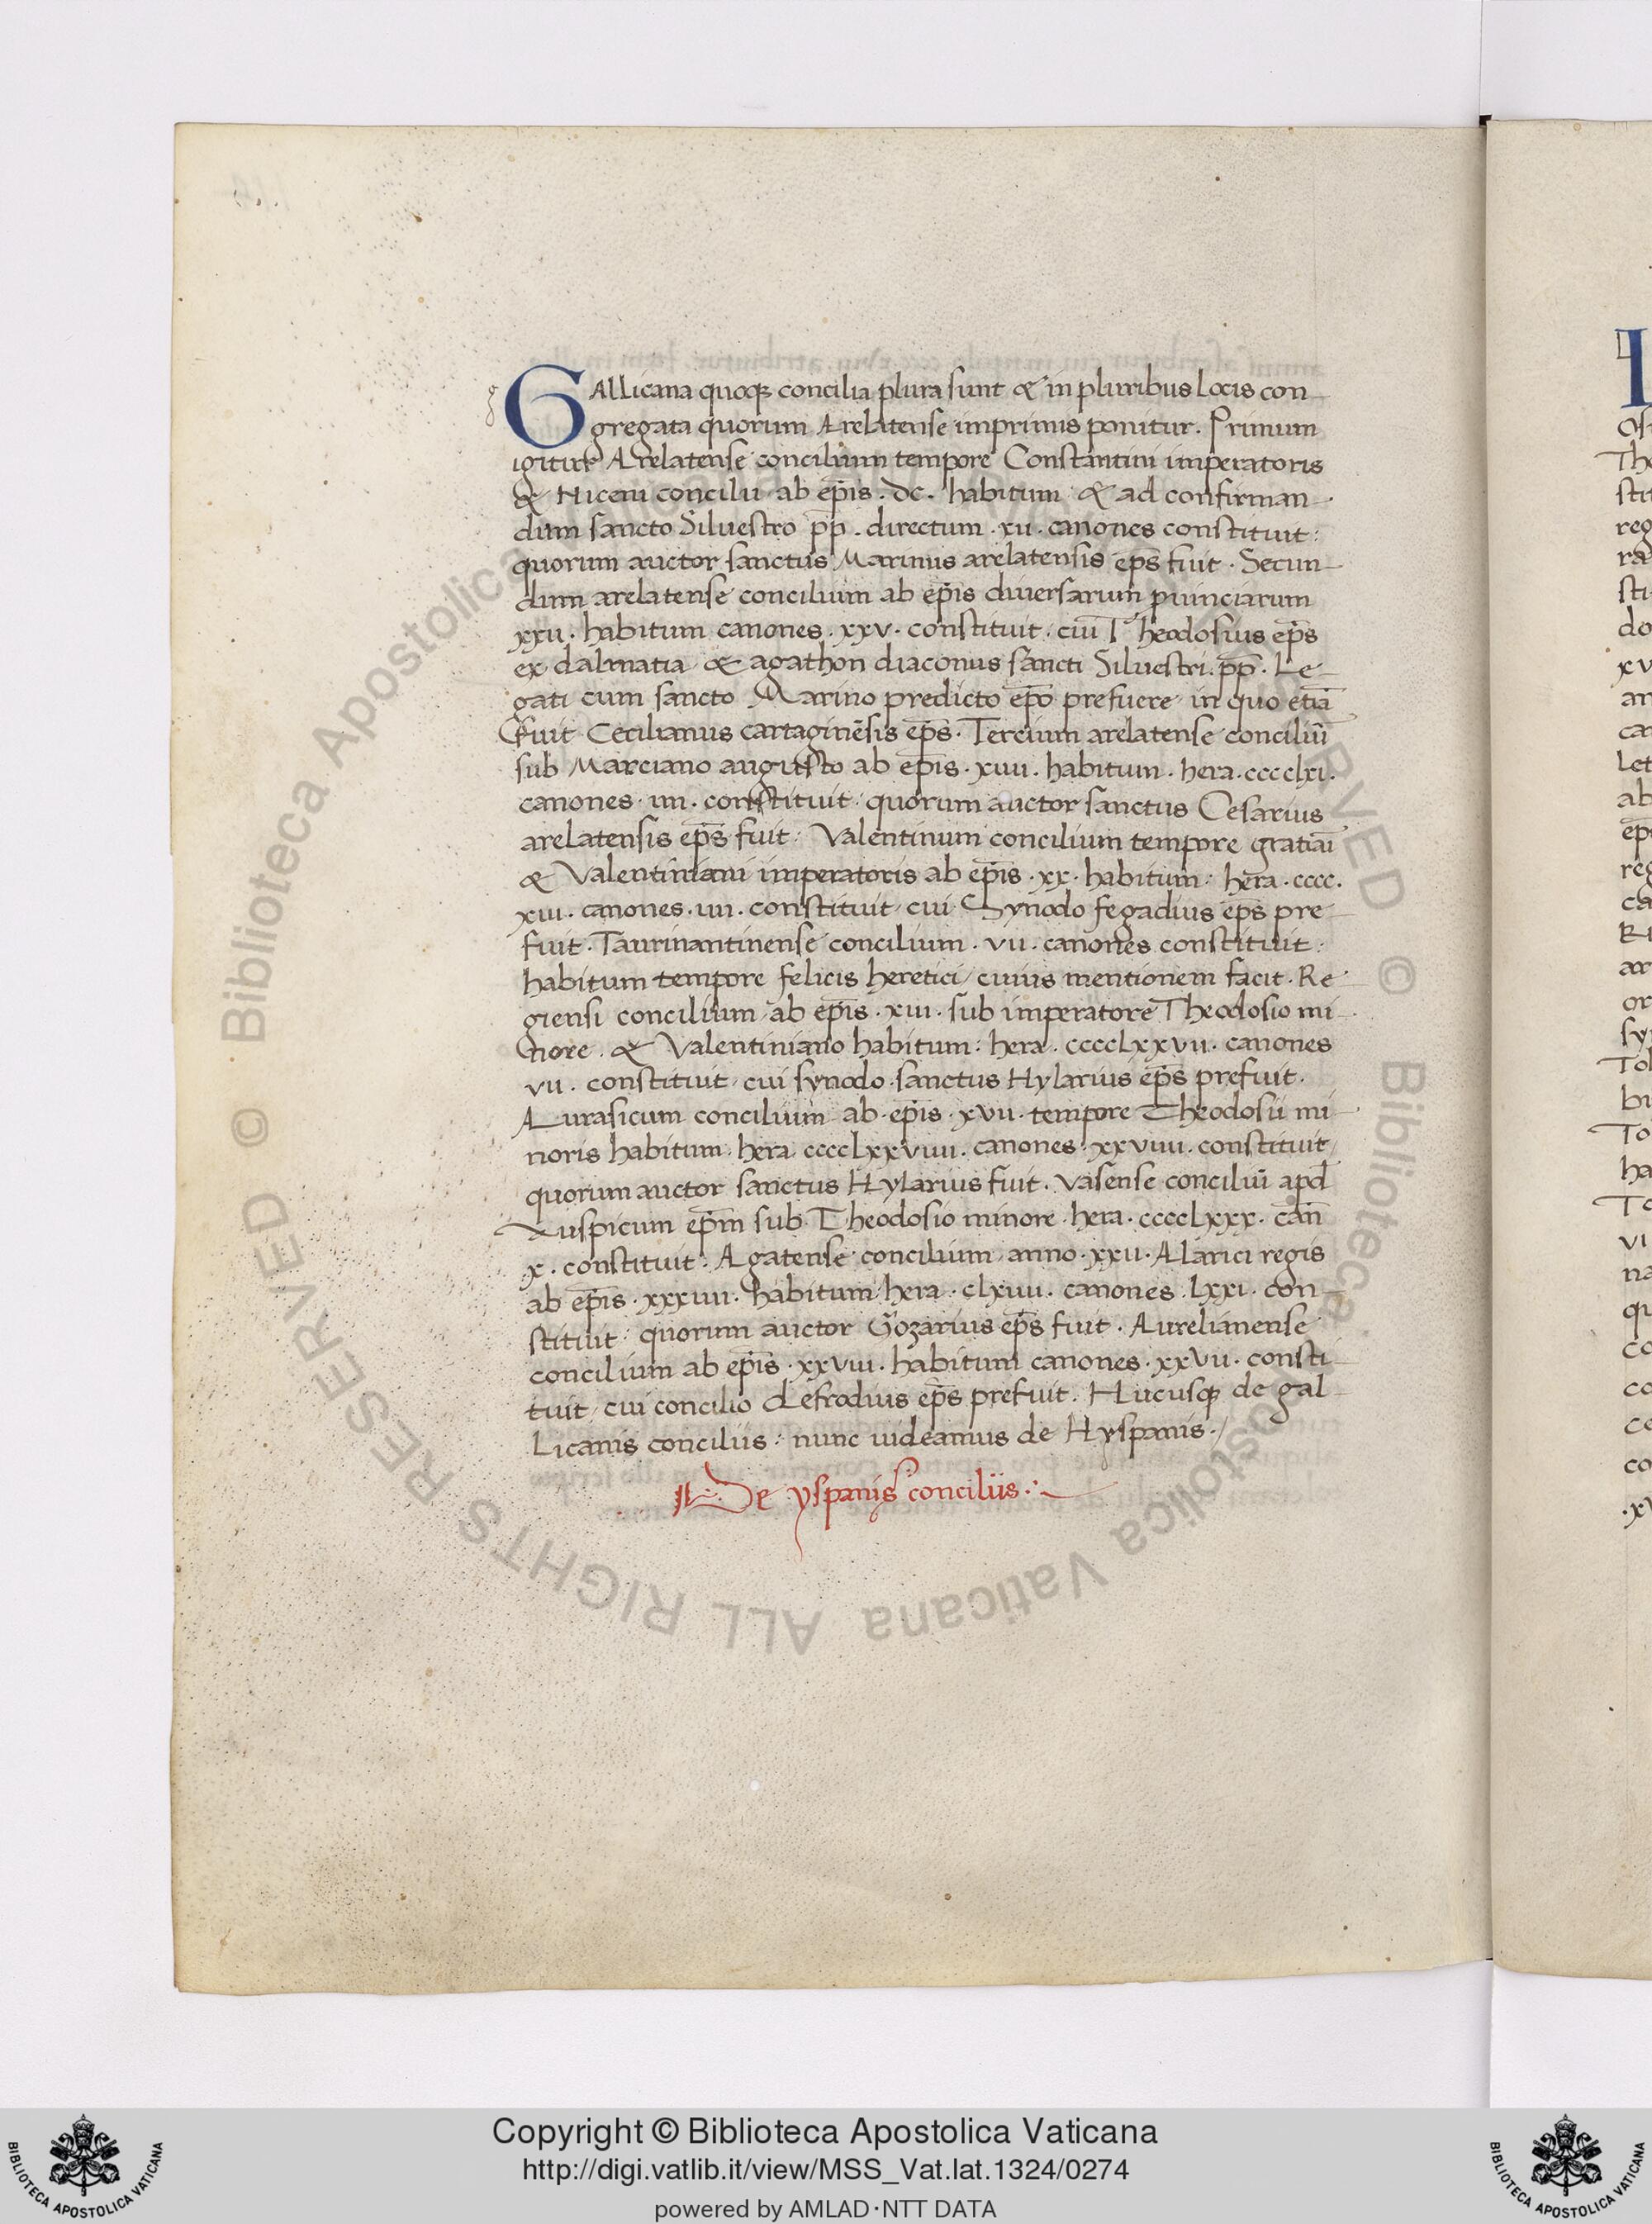 GAllicana quoqȝ concilia plura sunt & in pluribus locis con
gregata quorum Arelatense imprimis ponitur. Primum
igitur Arelatense concilium tempore Constantini imperatoris
& Niceni concilii ab ep̄is . dc . habitum & ad confirman
dum sancto Siluestro p̄p . directum . xii . canones constituit :
quorum auctor sanctus Marinus arelatensis ep̄s fuit . Secun
dum arelatense concilium ab ep̄is diuersarum puinciarum
xxii . habitum canones . xxv . constituit . cui Theodosius ep̄s
ex dalmatia & agathon diaconus sancti Siluestri . p̄p . Le
gati cum sancto Marino predicto ep̄o prefuere in quo etiā
fuit Cecilianus cartaginēsis ep̄s . Tercium arelatense conciliū
sub Marciano augusto ab ep̄is . xiiii . habitum . hera . cccclxi .
canones . iiii . constituit quorum auctor sanctus Cesarius
arelatensis ep̄s fuit : Valentinum concilium tempore gratiāi
& Valentiniani imperatoris ab ep̄is . xx . habitum : hera . cccc .
xiii . canones . iiii . constituit cui Synodo fegadius ep̄s pre
fuit . Taurinantinense concilium . vii . canones constituit :
habitum tempore felicis heretici / cuius mentionem facit . Re
giensi concilium ab ep̄is . xiii . sub imperatore Theodosio mi
nore . & Valentiniano habitum : hera . cccclxxvii . canones
vii . constituit cui synodo sanctus Hylarius ep̄s prefuit .
Aurasicum concilium ab ep̄is . xvii . tempore Theodosii mi
noris habitum hera cccclxxviiii . canones . xxviiii . constituit /
quorum auctor sanctus Hylarius fuit . Vasense conciliū apd
Auspicum ep̄m sub Theodosio minore . hera . cccclxxx . can̄
x . constituit : Agatense concilium anno . xxii . Alarici regis
ab ep̄is . xxxiiii . habitum hera . clxiiii . canones . lxxi . con
stituit : quorum auctor Gozarius ep̄s fuit . Aurelianense
concilium ab ep̄is . xxviii . habitum canones . xxvii . consti
tuit / cui concilio Lefrodius ep̄s prefuit . Hucusqȝ de gal
licanis conciliis : nunc uideamus de Hyspanis . /
De yspanis conciliis :
Copyright © Biblioteca Apostolica Vaticana
http://digi.vatlib.it/view/MSS_Vat.lat.1324/0274
powered by AMLAD · NTT DATA
BIBLIOTECA APOSTOLICA VATICANA
BIBLIOTECA APOSTOLICA VATICANA
© Biblioteca Apostolica Vaticana ALL RIGHTS RESERVED